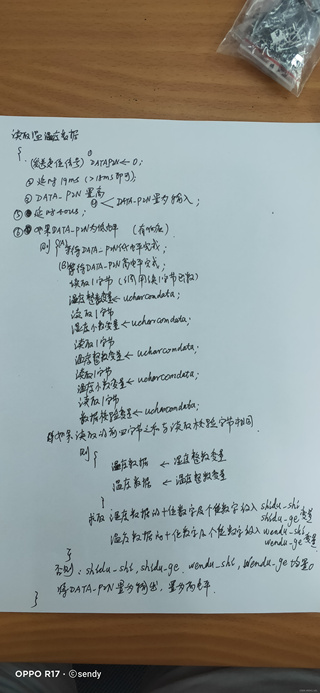 读取温湿度数据
{
(发送起始信号) DATAPIN ← 0;
② 延时19ms (>18ms即可);
③ DATA_PIN置高
④ DATA_PIN置为输入;
⑤ 延时40us;
⑥ 如果DATA_PIN为低电平 (有响应)
则 {(A) 等待DATA_PIN低电平完成;
(B) 等待DATA_PIN高电平完成;
读取1字节 (调用读1字节函数)
湿度整数变量 ← ucharcomdata;
读取1字节
湿度小数变量 ← ucharcomdata;
读取1字节
温度整数变量 ← ucharcomdata;
读取1字节
温度小数变量 ← ucharcomdata;
读取1字节
数据校验变量 ← ucharcomdata;
如果读取的前四字节之和与读取校验字节相同
则 {
湿度数据 ← 湿度整数变量
温度数据 ← 温度整数变量
}
求取 湿度数据的十位数字及个位数字放入 shidu_shi
shidu_ge 变量
温度数据的十位数字及个位数字放入 wendu_shi
wendu_ge 变量
}
否则: shidu_shi, shidu_ge, wendu_shi, wendu_ge 均置0
将DATA_PIN置为输出, 置为高电平.
}
OPPO R17 · ⓒsendy